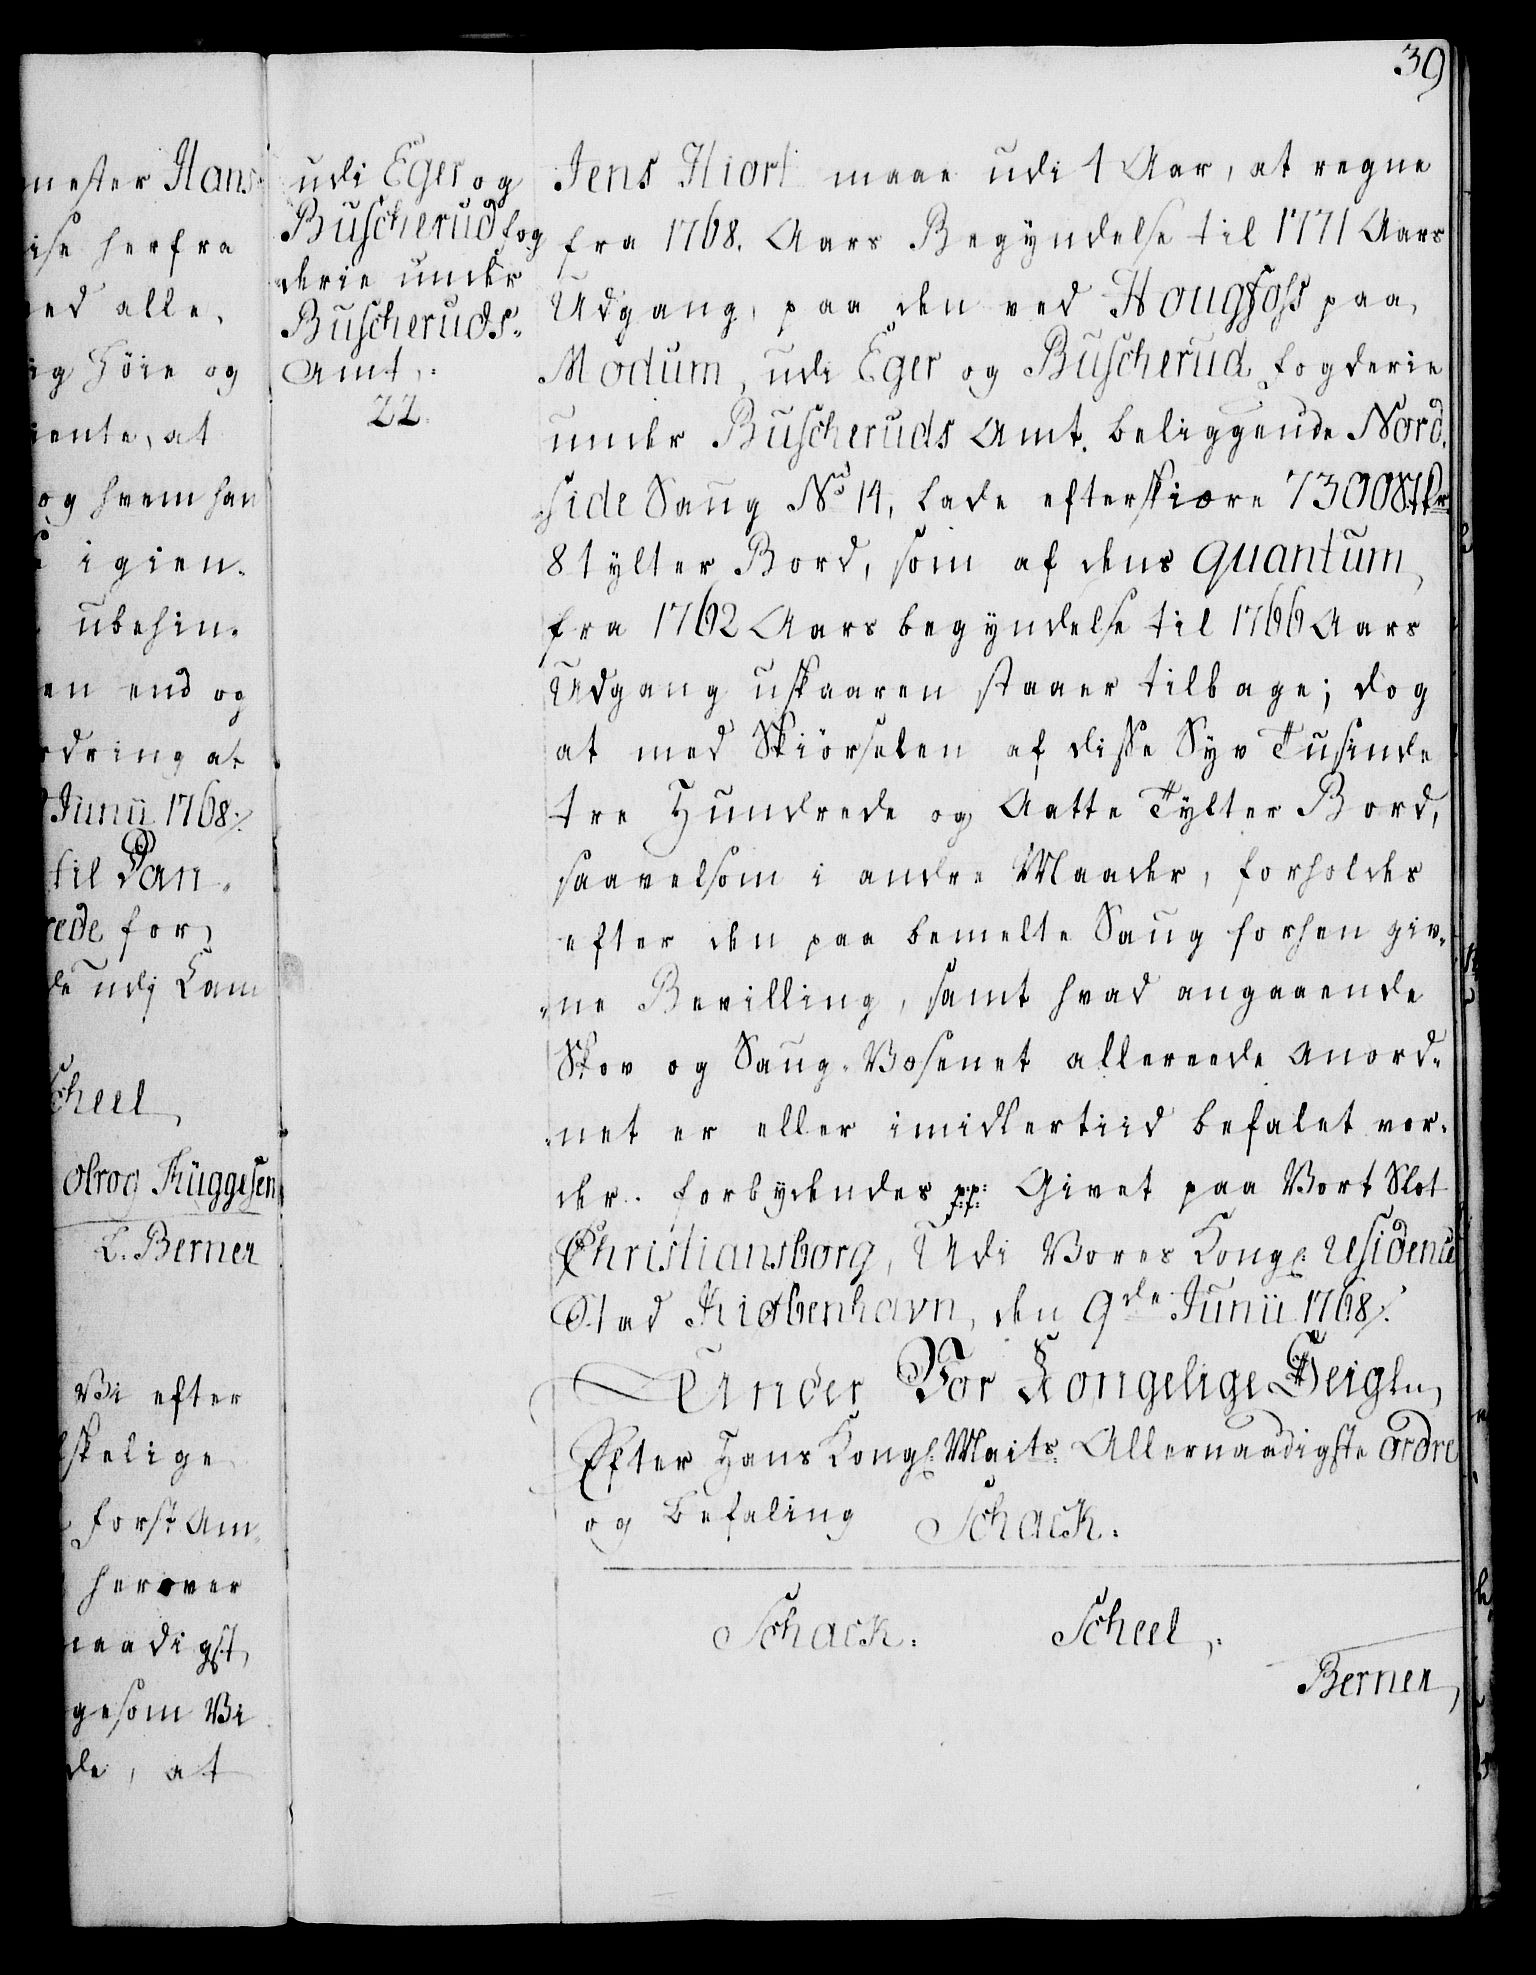 39
mester Hans
ise herfra
ed alle,
ig Høie og
iente, at
og hvem han
igien.
ubehin.
en end og
rdring at
Junii 1768./.
til Dan.
rede for
de udj Cam
cheel
olrog Küggesen
C. Berner
Vi efter
lskelige
Forst Am„
herover
naadigst,
gesom Vi
de, at
udi Eger og
Buscherud Fog
derie under
Buscheruds„
Amt.
22.
Jens Hiort maae udi 4 Aar, at regne
fra 1768. Aars Begyndelse til 1771 Aars
Udgang, paa den ved Hougfoss paa
Modum, udi Eger og Buscherud Fogderie
under Buscheruds Amt, beliggende Nord„
„side Saug No 14, lade efterskiære 7300 Stkr
8 tylter Bord, som af dens quantum
fra 1762 Aars begyndelse til 1766 Aars
Udgang uskaaren staaer tilbage; dog
at med Skiørselen af disse Syv Tusinde
tre Hundrede og Aatte Tylter Bord,
saavelsom i andre Maader, forholdes
efter den paa bemelte Saug forhen giv„
„ne Bevilling, samt hvad angaaende
Skov og Saug-Væsenet allereede anord„
„net er eller imidlertiid befalet vor„
der. Forbydendes p.p: Givet paa Vort Slot
Christiansborg, Udi Vores Kongl: residence
Stad Kiøbenhavn, den 9de Junii 1768./.
Under Vor Kongelige Zeigln,
Efter Hans Kongl: Maits: Allernaadigste ordre
og Befaling Schack.
Schack. Scheel.
Berner